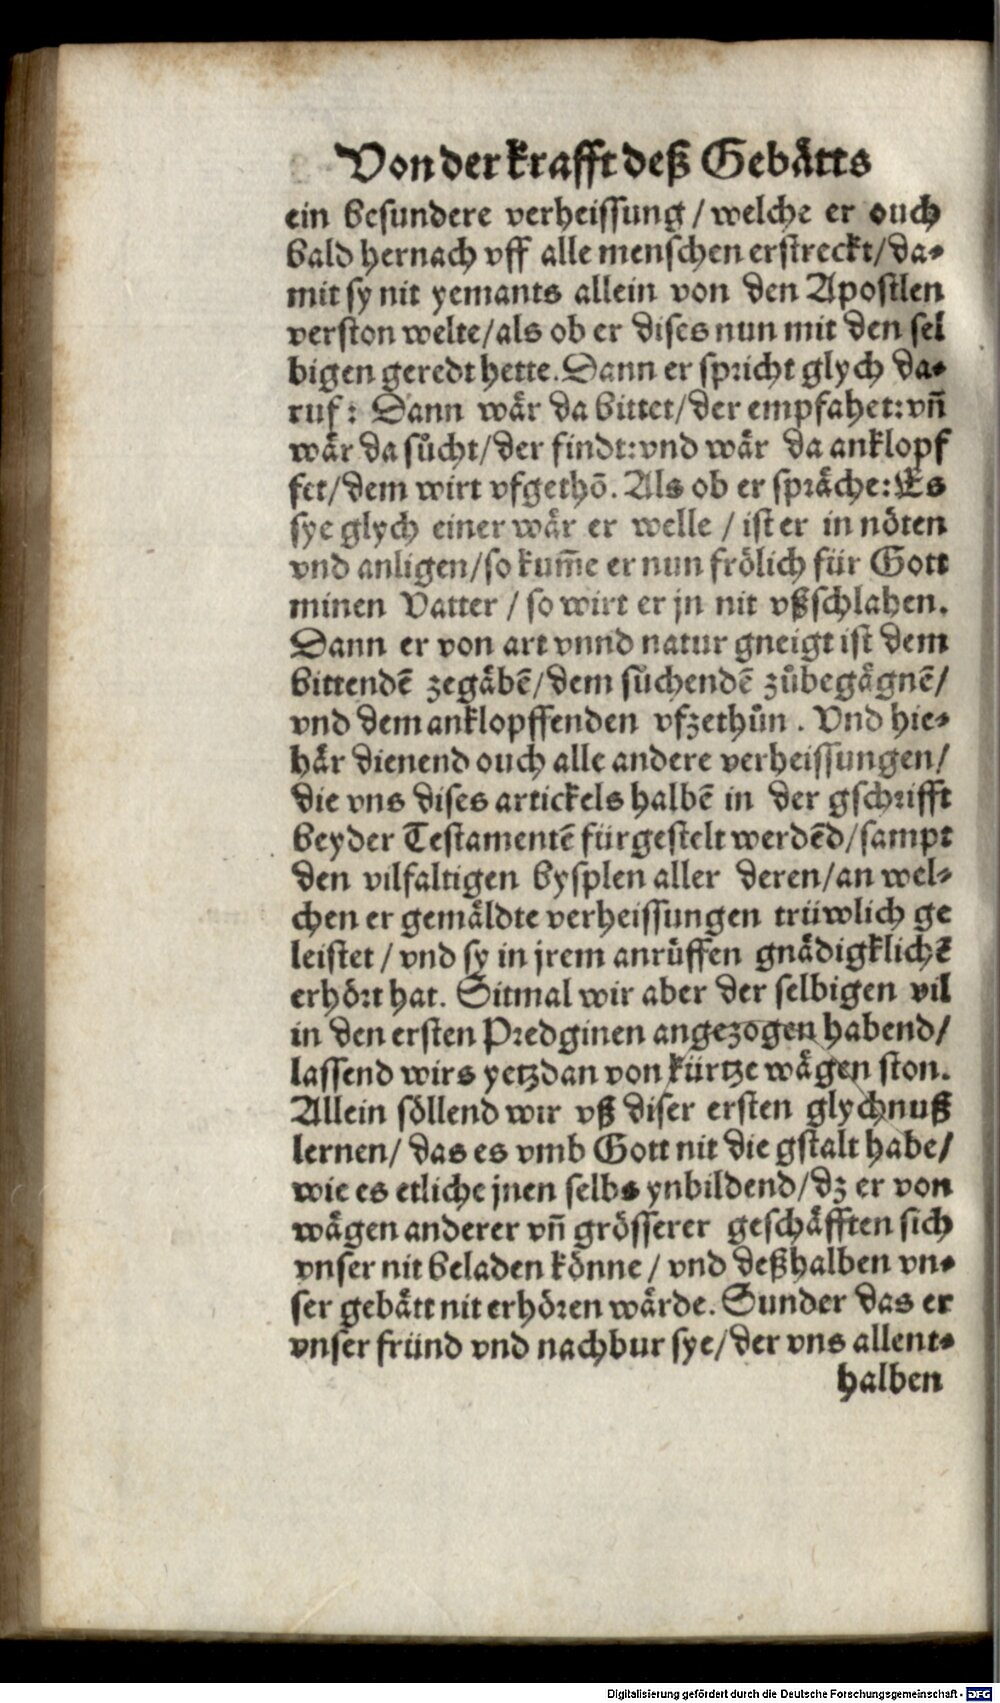 Von der krafft deß Gebätts
ein besundere verheissung / welche er ouch
bald hernach vff alle menschen erstreckt / da-
mit sy nit yemants allein von den Apostlen
verston welte / als ob er dises nun mit den sel
bigen geredt hette. Dann er spricht glych da-
ruf: Dann wär da bittet / der empfahet: vñ
wär da sůcht / der findt: vnd wär da anklopf
fet / dem wirt vfgethō. Als ob er spräche: Es
sye glych einer wär er welle / ist er in nöten
vnd anligen / so kum̄e er nun frölich für Gott
minen Vatter / so wirt er jn nit vßschlahen.
Dann er von art vnnd natur gneigt ist dem
bittendē zegäbē / dem sůchendē zůbegägnē /
vnd dem anklopffenden vfzethůn. Vnd hie-
här dienend ouch alle andere verheissungen /
die vns dises artickels halbē in der gschrifft
beyder Testamentē fürgestelt werdēd / sampt
den vilfaltigen bysplen aller deren / an wel-
chen er gemäldte verheissungen trüwlich ge
leistet / vnd sy in jrem anrůffen gnädigklichē
erhört hat. Sitmal wir aber der selbigen vil
in den ersten Predginen angezogen habend /
lassend wirs yetzdan von kürtze wägen ston.
Allein söllend wir vß diser ersten glychnuß
lernen / das es vmb Gott nit die gstalt habe /
wie es etliche jnen selbs ynbildend / dz er von
wägen anderer vñ grösserer geschäfften sich
vnser nit beladen könne / vnd deßhalben vn-
ser gebätt nit erhören wärde. Sunder das er
vnser fründ vnd nachbur sye / der vns allent-
halben
Digitalisierung gefördert durch die Deutsche Forschungsgemeinschaft - DFG